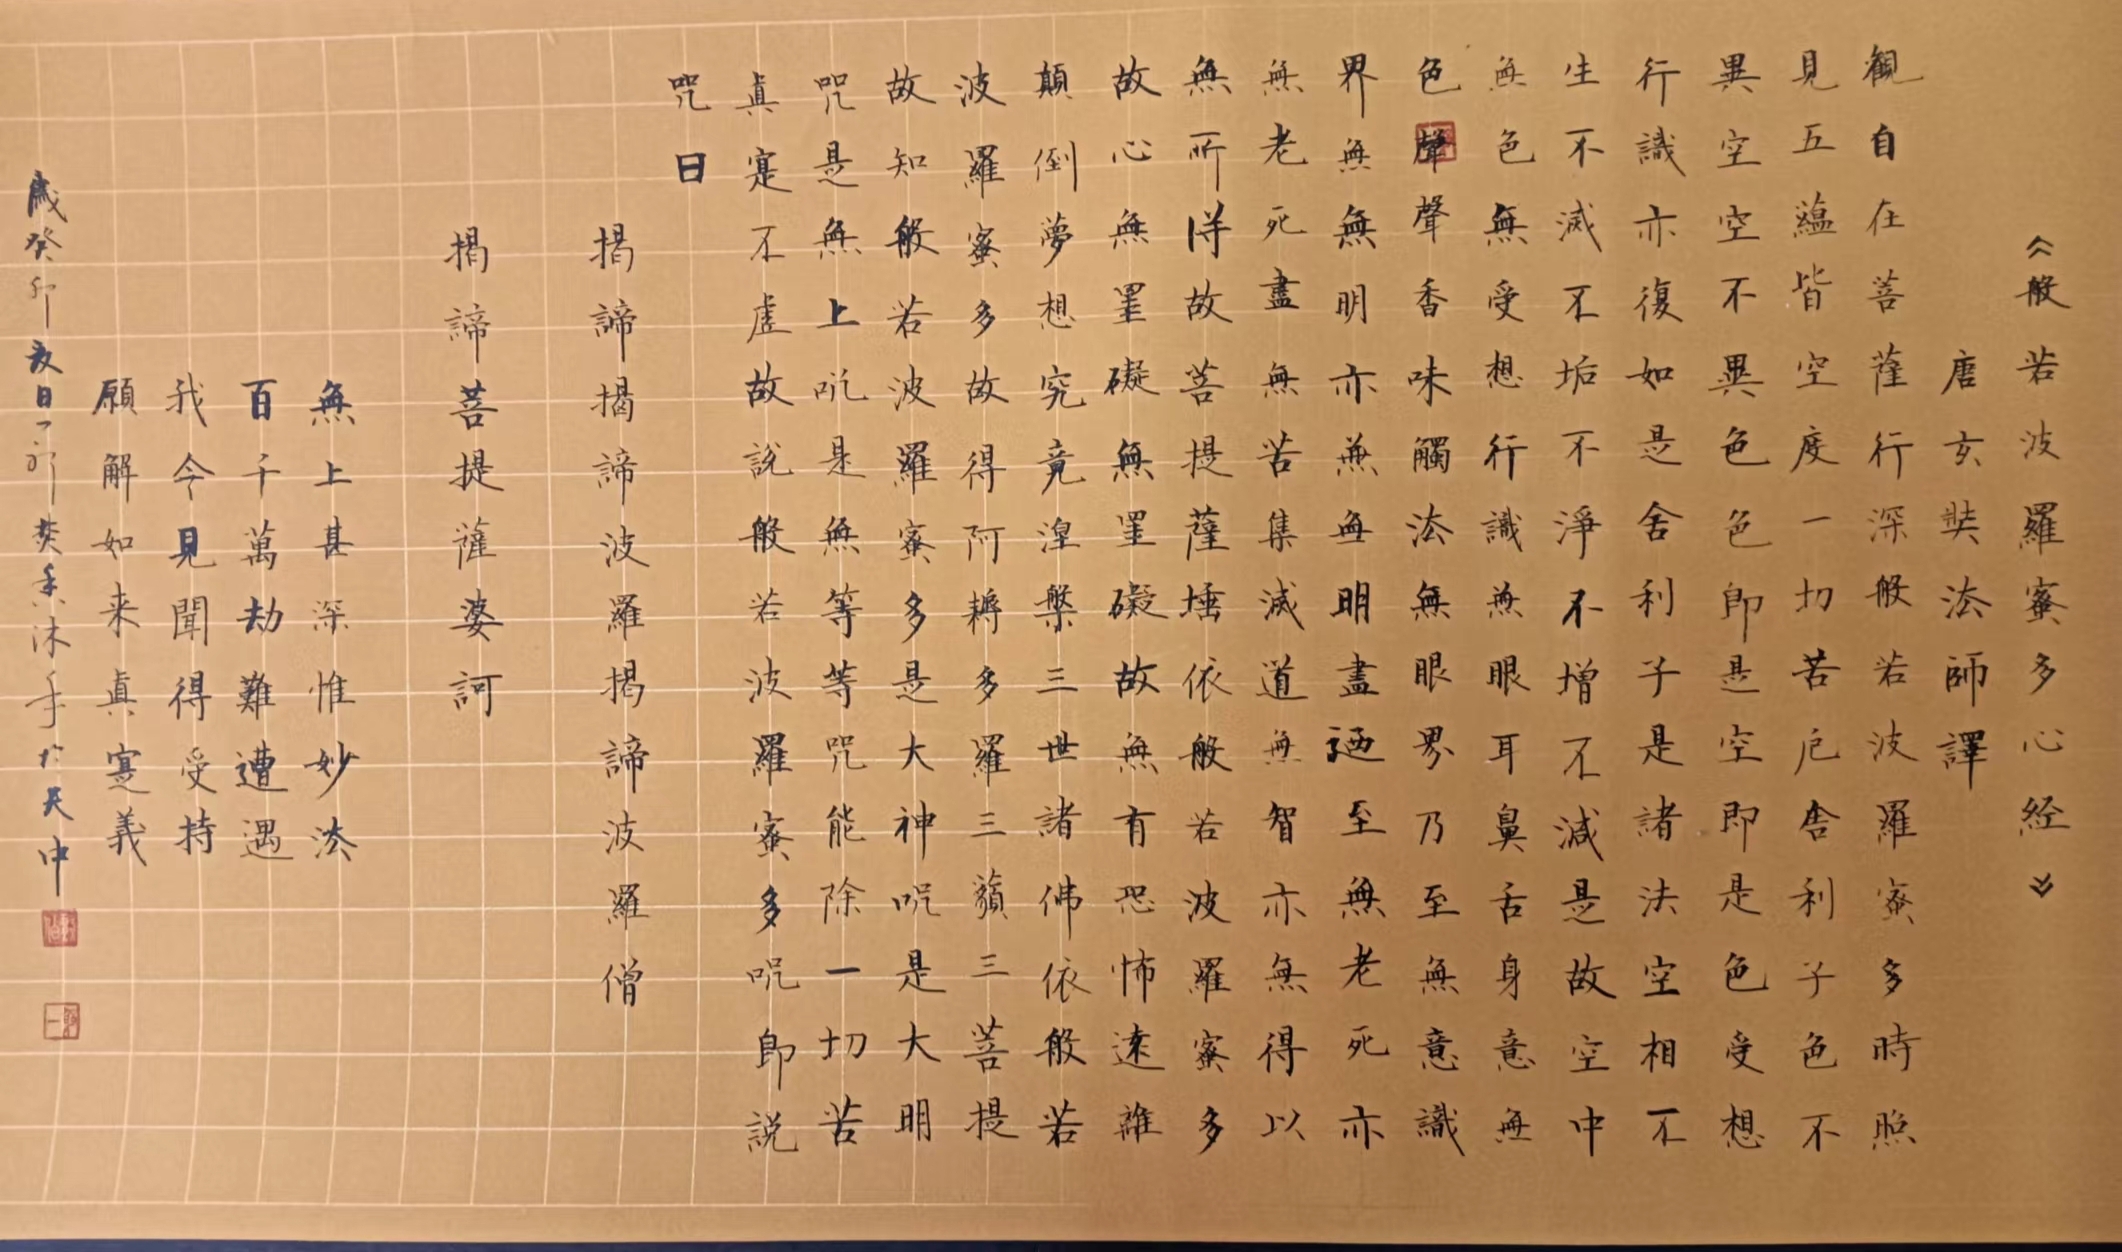 《般若波羅蜜多心经》
唐玄奘法師譯
觀自在菩薩行深般若波羅蜜多時照
見五蘊皆空度一切苦厄舍利子色不
異空空不異色色即是空即是色受想
行識亦復如是舍利子是諸法空相不
生不滅不垢不淨不增不減是故空中
無色無受想行識無眼耳鼻舌身意無
色聲聲香味觸法無眼界乃至無意識
界無無明亦無無明盡迺至無老死亦
無老死盡無苦集滅道無智亦無得以
無所得故菩提薩埵依般若波羅蜜多
故心無罣礙無罣礙故無有恐怖遠離
顛倒夢想究竟涅槃三世諸佛依般若
波羅蜜多故得阿耨多羅三藐三菩提
故知般若波羅蜜多是大神咒是大明
咒是無上咒是無等等咒能除一切苦
真寔不虛故說般若波羅蜜多咒即說
咒曰
揭諦揭諦波羅揭諦波羅僧
揭諦菩提薩婆訶
無上甚深惟妙法
百千萬劫難遭遇
我今見聞得受持
願解如来真寔義
歲癸卯亥日一焚香沐手於天中